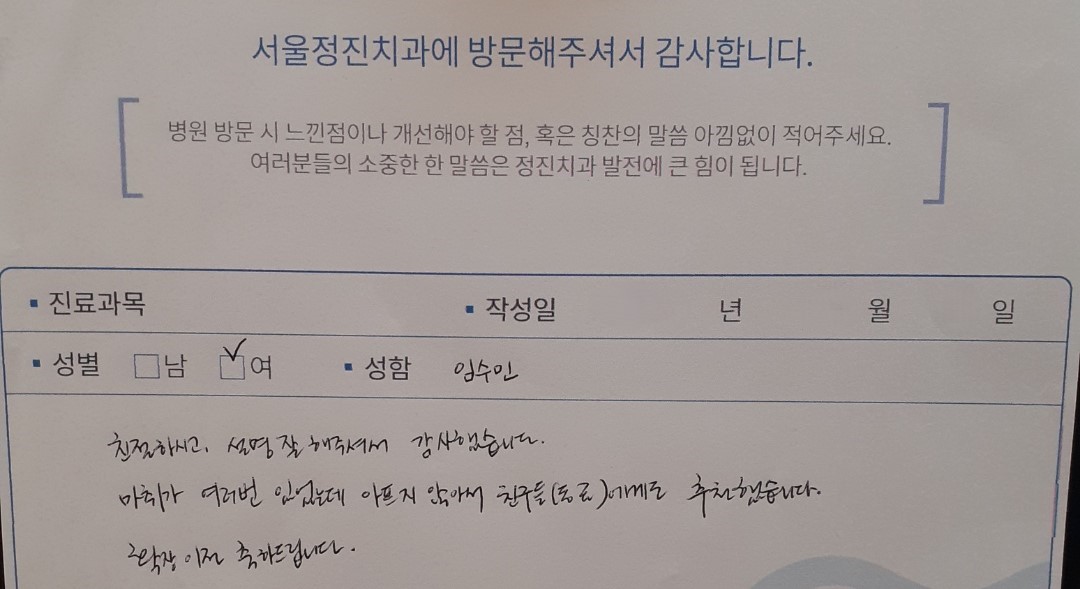 서울정진치과에 방문해주셔서 감사합니다.
병원 방문 시 느낀점이나 개선해야 할 점, 혹은 칭찬의 말씀 아낌없이 적어주세요.
여러분들의 소중한 한 말씀은 정진치과 발전에 큰 힘이 됩니다.
▪ 진료과목 ▪ 작성일 년 월 일
▪ 성별 남 여 ▪ 성함 임수민
친절하시고, 설명 잘 해주셔서 감사했습니다.
마취가 여러번 있었는데 아프지 않아서 친구들(동료)에게도 추천했습니다.
확장이전 축하드립니다.